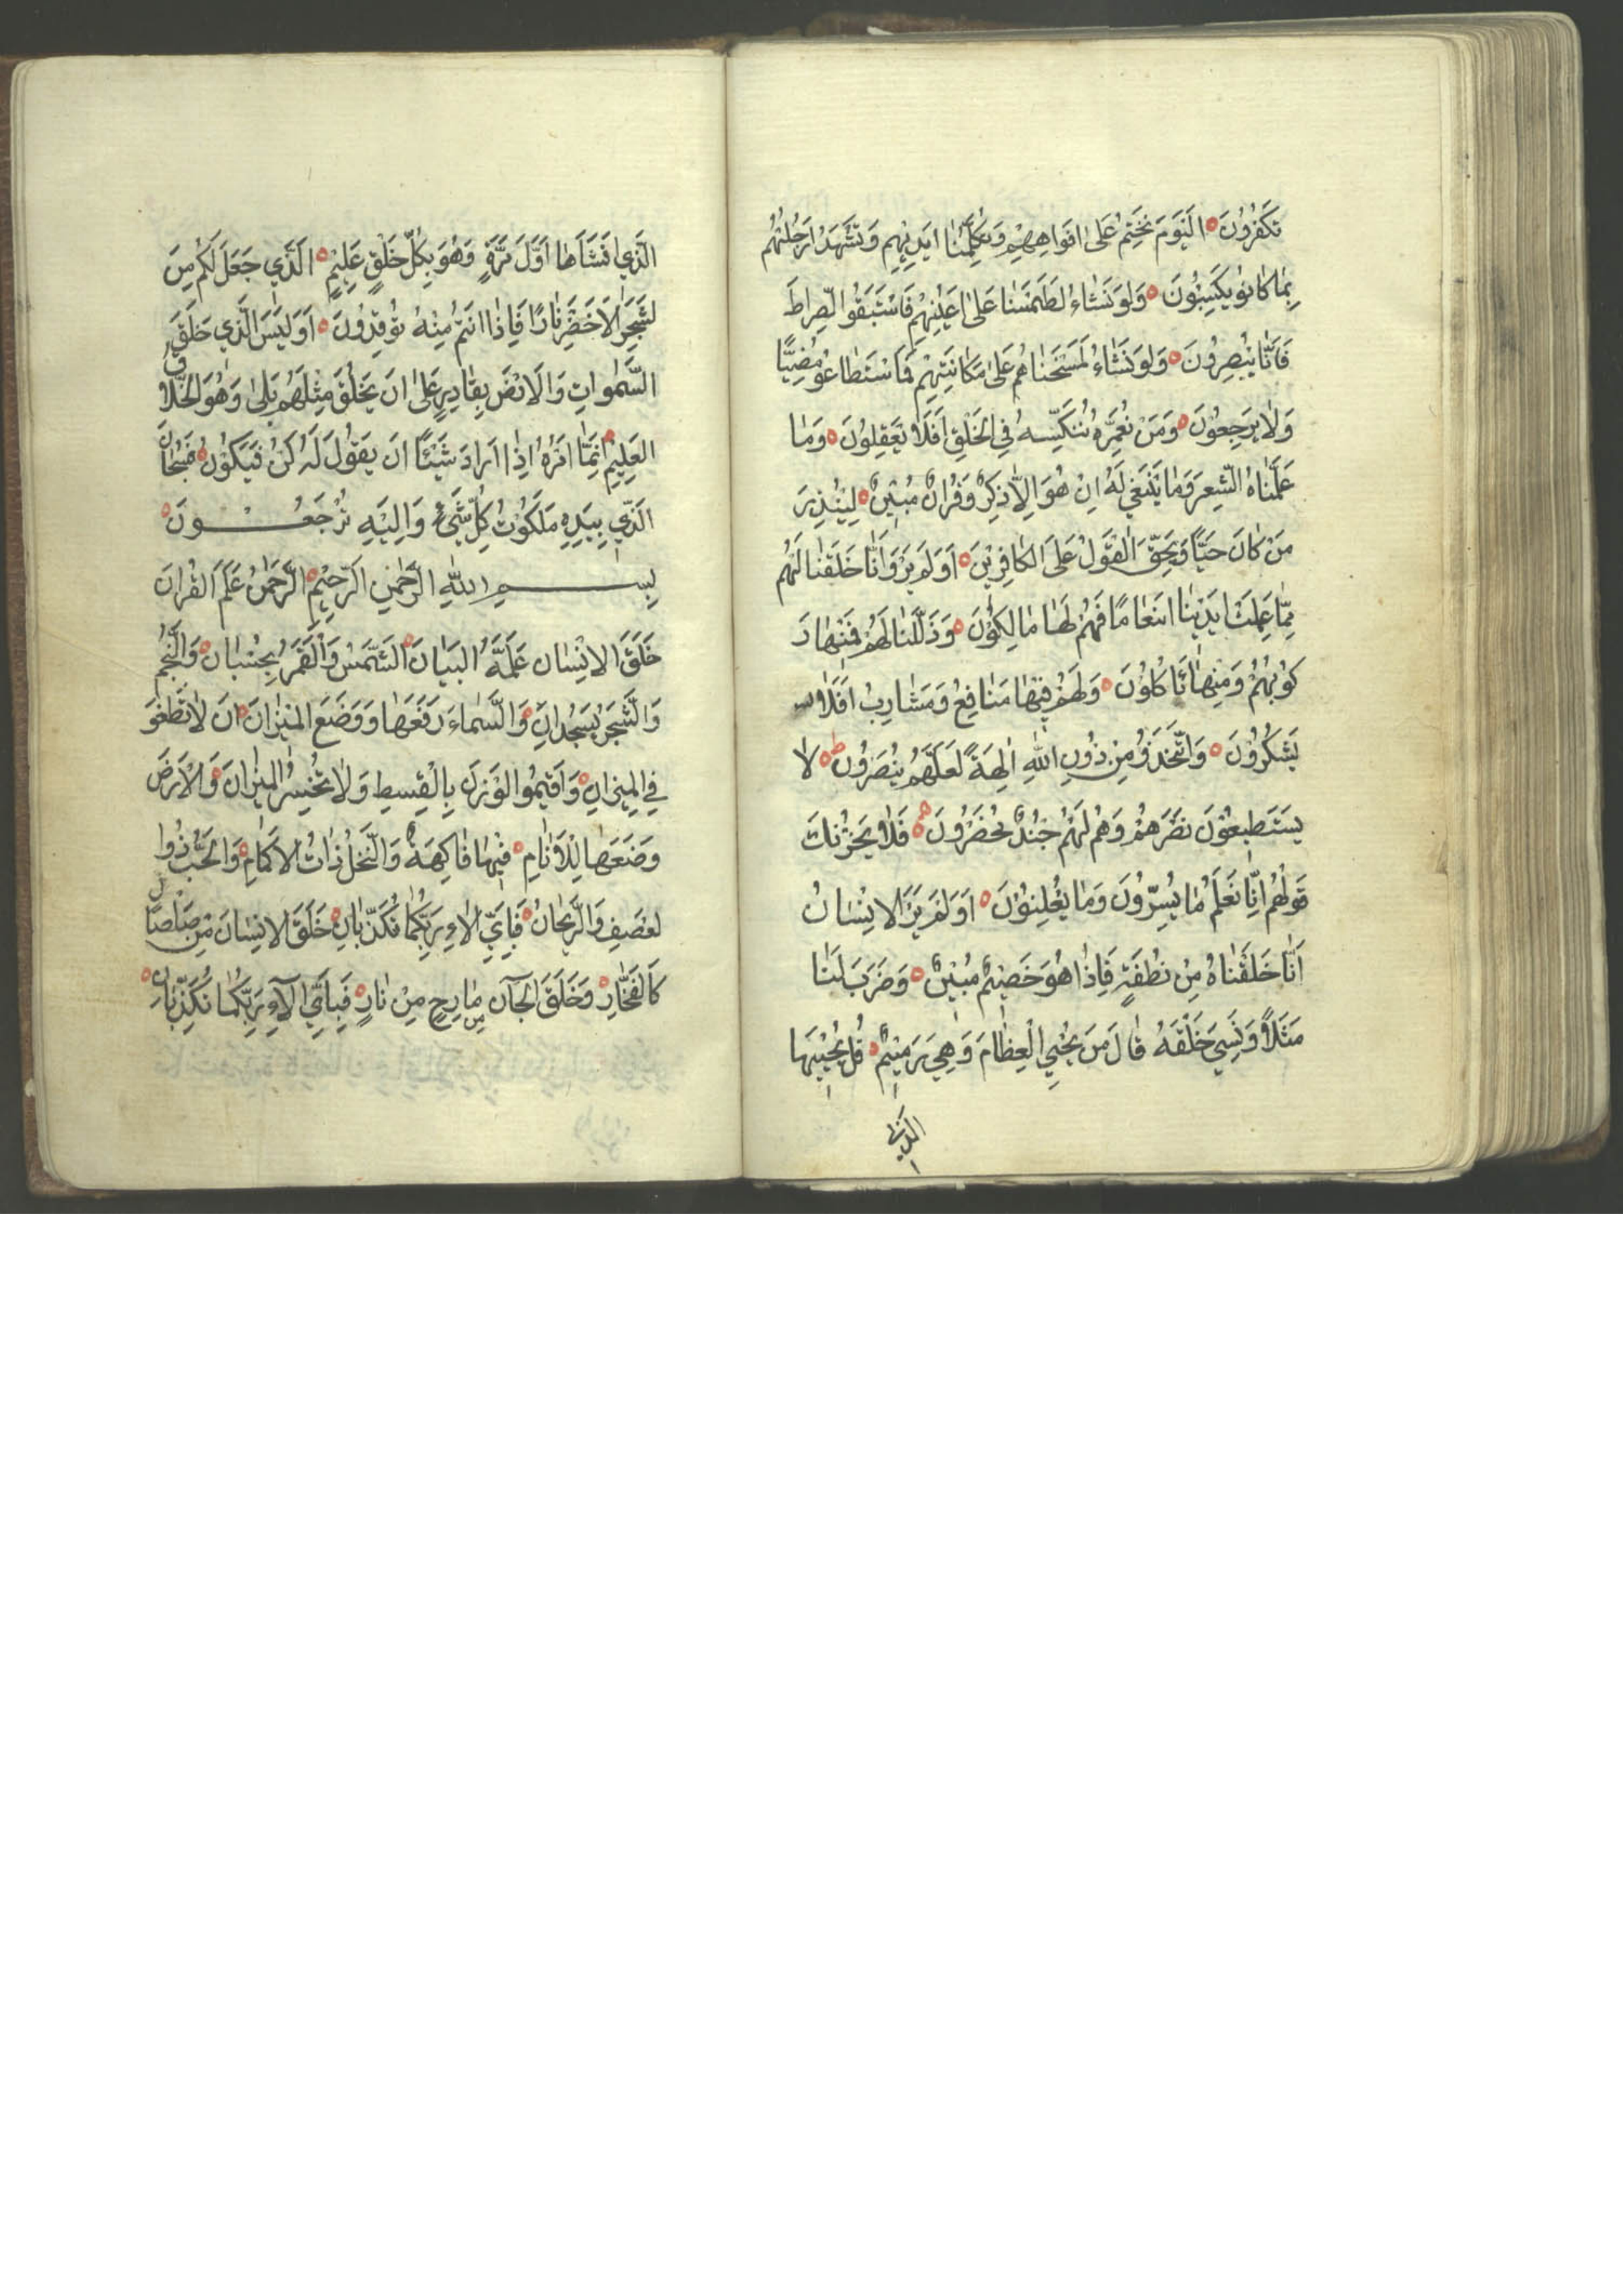 تَكْفُرُونَ ۝ اَلْيَوْمَ نَخْتِمُ عَلىٰ افَواهِهِمْ وَتُكَلِّمُنٰا ايَدِيْهِم وَتَشْهَدُ ارَجُلُهُم
بِمٰا كٰا نوُ يَكسِبُونَ ۝ وَلَو نَشٰاءُ لطَمَسْنٰا عَلىٰ اعَيُنِهِم فَاسْتَبَقُوا الصِّراطَ
فَاَنّٰا يُبْصِرُونَ ۝ وَلَو نَشٰاءُ لَمَسَخْنٰا هُم عَلىٰ مَكٰانَتِهِمْ فَمَا سْتَطٰا عُو مُضِيًّا
وَلاٰ يَرجِعُونَ ۝ وَمَنْ نُعَمِّرهُ نُنَكِّسِهُ فِي الخَلْقِ اَفَلاٰ يَعقِلوُنَ ۝ وَمٰا
عَلَّمْنٰاهُ الشِّعرَ وَمٰا يَنْبَغي لَهُ اِنْ هُوَ اِلاّٰ ذِكرٌ وَقُرانٌ مُبيْنٌ ۝ لِيُنْذِرَ
مَنْ كٰانَ حَيًّا وَيَحِقّ القَوْلُ عَلَى الكٰافِرِيْنَ ۝ اَوَلَم يَرَوْا اَنّٰا خَلَقْنٰا لَهُم
مِمّٰا عَمِلَتْ ايَدْيْنٰا انَعٰا مًا فَهُمْ لَهٰا مٰا لِكُوْنَ ۝ وَذَلَّلْنٰا لَهُمْ فَمِنْهٰا رَ
كوُبُهُمْ وَمِنهٰا يَا كُلُوْنَ ۝ وَلَهُمْ فيْهٰا مَنٰا فِعُ وَمَشٰا رِبُ اَفَلاٰ
يَشكُرُوُنَ ۝ وَاتَّخَذوُ مِنْ دُوْنِ اللهِ اٰلِهَةً لَعَلَّهُم يُنْصَرُونَ ۝ لاٰ
يَستَطيعُوْنَ نصْرَهُمْ وَهُم لَهُمْ جُنْدٌ مُحْضَرُونَ ۝ فَلاٰ يَحزُنْكَ
قوَلُهُم اِنّٰا نَعْلَمُ مٰا يُسِرّوُنَ وَمٰا يُعْلِنوُنَ ۝ اَوَلَم يَرَ الاِنْسٰا نُ
اَنّٰا خَلَقْنٰاهُ مِنْ نطُفَةٍ فَاِذٰا هُوَ خَصيْمٌ مُبيْنٌ ۝ وَضَرَبَ لَنٰا
مَثَلاً وَنَسِيَ خَلْقَهُ قٰا لَ مَنْ يُحْيِي الْعِظٰامَ وَهِيَ رَميْمٌ ۝ قُل يُحْييْهٰا
الذي
الَّذي انَشَاَهٰا اَوَّلَ مَرَّةٍ وَهُوَ بِكُلّ خَلْقٍ عَلِيْمٍ ۝ الَّذي جَعَلَ لَكُم مِنَ
لشَّجَرِ الاَخضَرِ نٰارًا فَاِذٰا انَتمُ مِنْهُ توُقِدُونَ ۝ اَوَليَسَ الَّذي خَلَقَ
السَّمٰواتِ وَالاَرْضَ بِقٰادِرٍ عَلىٰ انَ يَخلُقَ مِثْلَهُم بَلىٰ وَهُوَ الخَلاّٰق
العَلِيْمِ ۝ اِنَّمٰا امَرُهُ اِذٰا ارَادَ شَيْئًا انَ يقَوُلَ لَهُ كُنْ فَيَكوُنُ ۝ فَسُبحٰانَ
الَّذي بِيَدِهِ مَلَكوُتُ كلِّ شَيْءٍ وَاِليَهِ تُرْجَعُونَ ۝
بِسمِ اللهِ الرَّحْمٰنِ الرَّحِيْمِ ۝ الرَّحْمٰنُ عَلَّمَ القْرانَ
خَلَقَ الاِنْسٰان عَلَّمَهُ البَيٰانَ ۝ الشَّمسُ وَالْقَمَرُ بِحُسْبٰان ۝ وَالنَّجْمُ
وَالشَّجَرُ يَسجُدانِ ۝ وَالسَّمٰاءَ رَفَعَهٰا وَوَضَعَ الميْزانَ ۝ انَ لاٰ تَطغَوْ
فِي الميْزانِ ۝ وَاَقيْمُوا الوَزنَ بِالْقِسطِ وَلاٰ تُخْسِرُ الميْزانَ ۝ وَالاَرْضَ
وضَعَهٰا لِلْاَنٰامِ ۝ فيْهٰا فٰا كِهَةٌ وَالنَّخلُ ذٰاتُ الاَكمٰامِ ۝ وَالحَبُّ ذُوا
لعَصفِ وَالرَّيحٰانُ ۝ فَبِاَيِّ اٰلاءِ رَبِّكُمٰا تُكَذِّبٰانِ ۝ خَلَقَ الاِنسٰانَ مِنْ صَلصٰالٍ
كَالفَخّٰارِ ۝ وَخَلَقَ الجٰآن مِن مٰارِجٍ مِنْ نٰارٍ ۝ فَبِاَيّ اٰلآءِ رَبِّكُمٰا تُكَذِّبٰانِ ۝